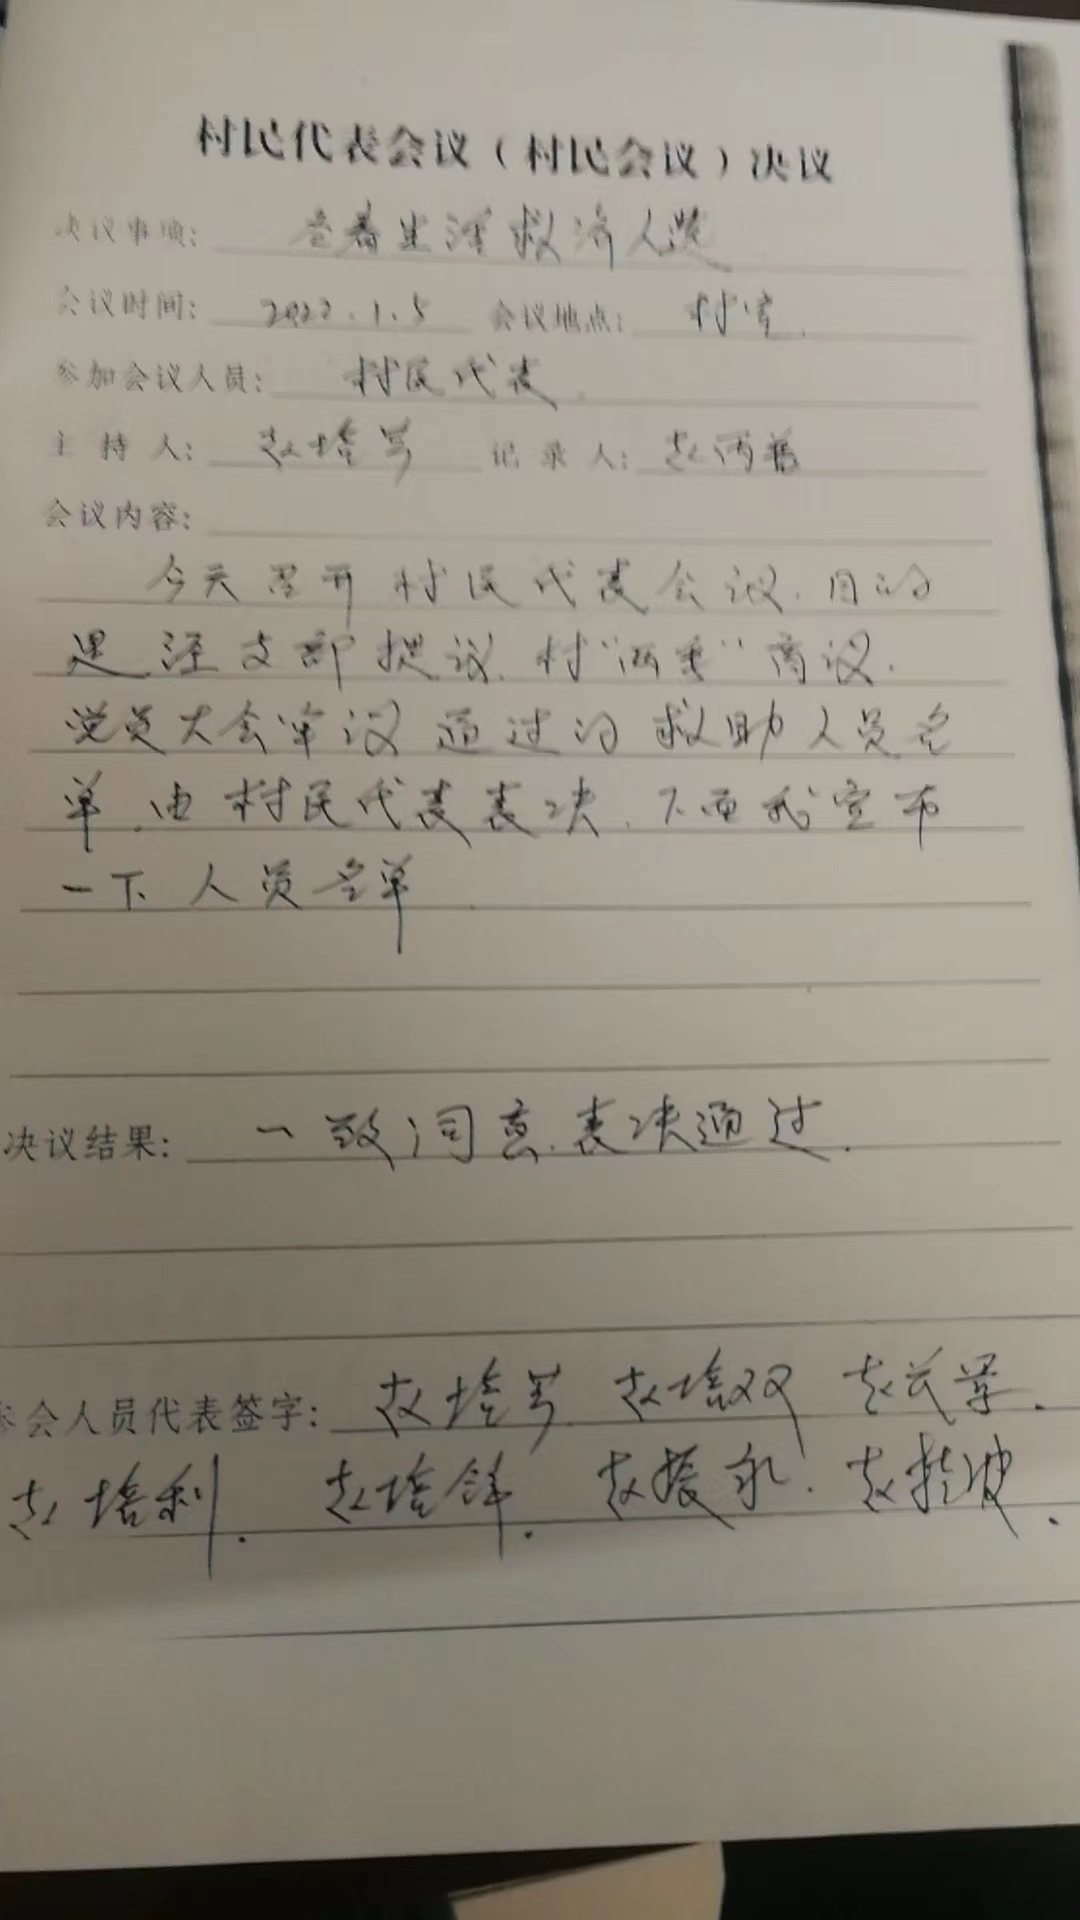 村民代表会议（村民会议）决议
决议事项: 冬春生活救济人选
会议时间: 2022.1.5 会议地点: 村室.
参加会议人员: 村民代表.
主 持 人: 赵培 记 录 人: 赵丙
会议内容:
今天召开村民代表会议.目的
是.经支部提议.村“两委”商议.
党员大会审议通过的救助人员名
单.由村民代表表决.下面我宣布
一下人员名单.
决议结果: 一致同意.表决通过.
参会人员代表签字: 赵培 赵培双 赵
赵培利. 赵培锋. 赵振永. 赵